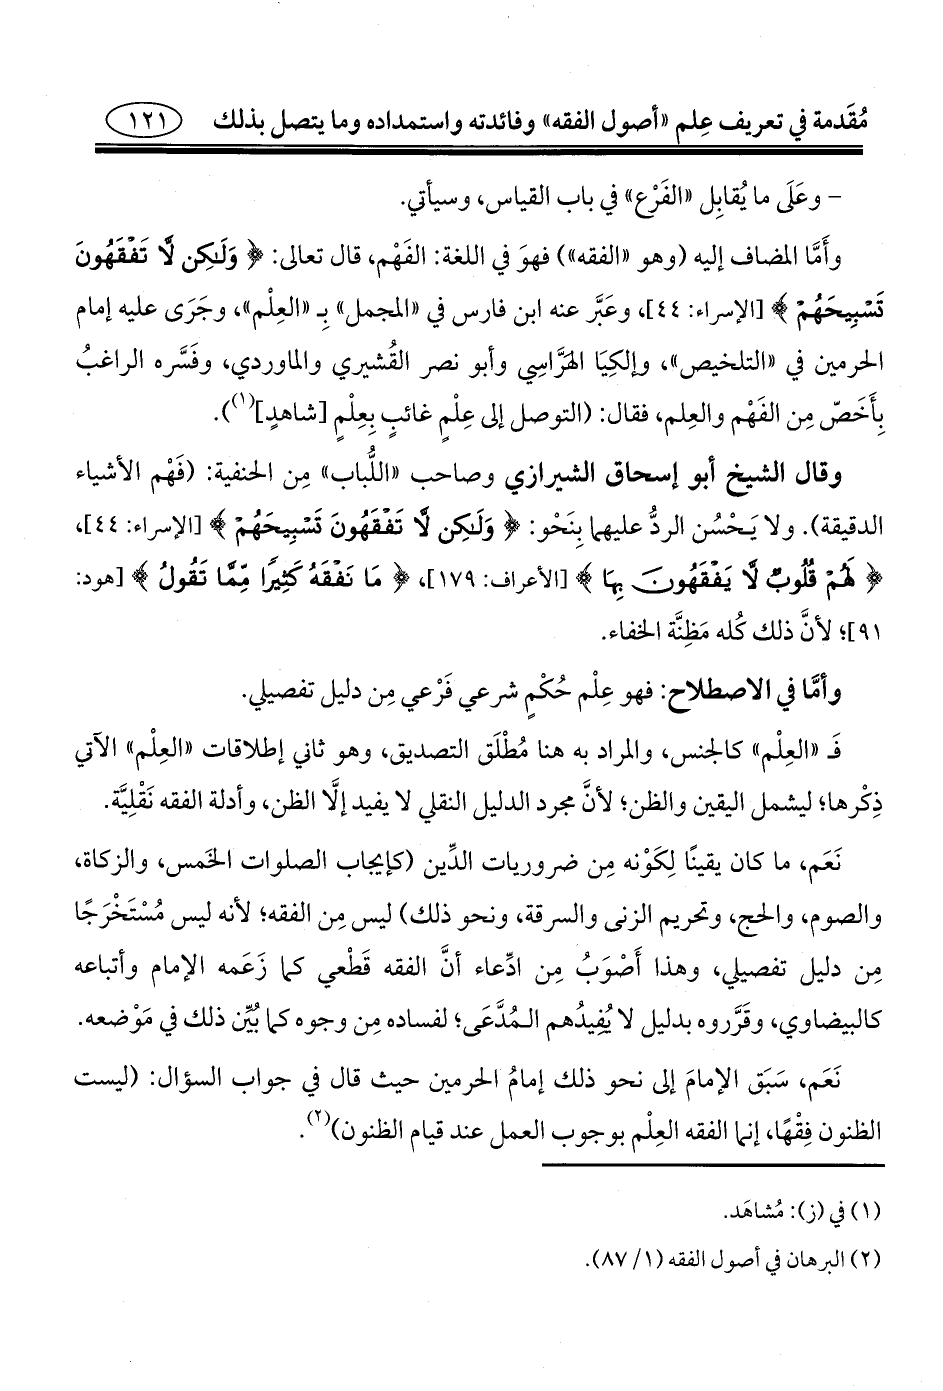 مُقَدمة في تعريف عِلم «أصول الفقه» وفائدته واستمداده وما يتصل بذلك ١٢١
- وعَلَى ما يُقابِل «الفَرْع» في باب القياس، وسيأتي.
وأَمَّا المضاف إليه (وهو «الفقه») فهوَ في اللغة: الفَهْم، قال تعالى: ﴿ وَلَٰكِن لَّا تَفْقَهُونَ
تَسْبِيحَهُمْ ﴾ [الإسراء: ٤٤]، وعَبَّر عنه ابن فارس في «المجمل» بِـ «العِلْم»، وجَرَى عليه إمام
الحرمين في «التلخيص»، وإلكِيَا الهَرَّاسِي وأبو نصر القُشيري والماوردي، وفَسَّره الراغبُ
بِأَخَصّ مِن الفَهْم والعِلم، فقال: (التوصل إلى عِلْمٍ غائبٍ بِعِلْمٍ [شاهدٍ](١)).
وقال الشيخ أبو إسحاق الشيرازي وصاحب «اللُّباب» مِن الحنفية: (فَهْم الأشياء
الدقيقة). ولا يَحْسُن الردُّ عليهما بِنَحْو: ﴿ وَلَٰكِن لَّا تَفْقَهُونَ تَسْبِيحَهُمْ ﴾ [الإسراء: ٤٤]،
﴿ لَهُمْ قُلُوبٌ لَّا يَفْقَهُونَ بِهَا ﴾ [الأعراف: ١٧٩]، ﴿ مَا نَفْقَهُ كَثِيرًا مِّمَّا تَقُولُ ﴾ [هود:
٩١]؛ لأنَّ ذلك كُله مَظِنَّة الخفاء.
وأمَّا في الاصطلاح: فهو عِلْم حُكْمٍ شرعي فَرْعي مِن دليل تفصيلي.
فَـ «العِلْم» كالجنس، والمراد به هنا مُطْلَق التصديق، وهو ثاني إطلاقات «العِلْم» الآتي
ذِكْرها؛ ليشمل اليقين والظن؛ لأنَّ مجرد الدليل النقلي لا يفيد إلَّا الظن، وأدلة الفقه نَقْلِيَّة.
نَعَم، ما كان يقينًا لِكَوْنه مِن ضروريات الدِّين (كإيجاب الصلوات الخمس، والزكاة،
والصوم، والحج، وتحريم الزنى والسرقة، ونحو ذلك) ليس مِن الفقه؛ لأنه ليس مُسْتَخْرَجًا
مِن دليل تفصيلي، وهذا أَصْوَبُ مِن ادِّعاء أنَّ الفقه قَطْعي كما زَعَمه الإمام وأتباعه
كالبيضاوي، وقَرَّروه بدليل لا يُفِيدُهم المُدَّعَى؛ لفساده مِن وجوه كما بُيِّن ذلك في مَوْضعه.
نَعَم، سَبَق الإمامَ إلى نحو ذلك إمامُ الحرمين حيث قال في جواب السؤال: (ليست
الظنون فِقْهًا، إنما الفقه العِلْم بوجوب العمل عند قيام الظنون)(٢).
(١) في (ز): مُشاهَد.
(٢) البرهان في أصول الفقه (١/ ٨٧).